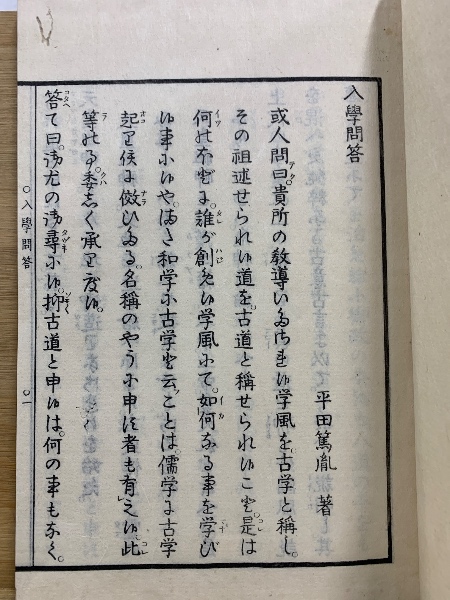 入學問答
平田篤胤 著
或人問曰。貴所の教導いたされ候学風を。古学と稱し。
その祖述せられ候道を。古道と稱せられ候こと。是は
何れのほど。誰が創め候学風にて。如何なる事を学び
候事に候や。はた和学に古学と云ことは。儒学に古学
起り候に倣ひたる。名稱のやうに申す者も有之候。此
等の事。委しく承り度候。
答て曰。御尤の御尋に候。抑古道と申候は。何の事もなく。
〇入學問答 〇一